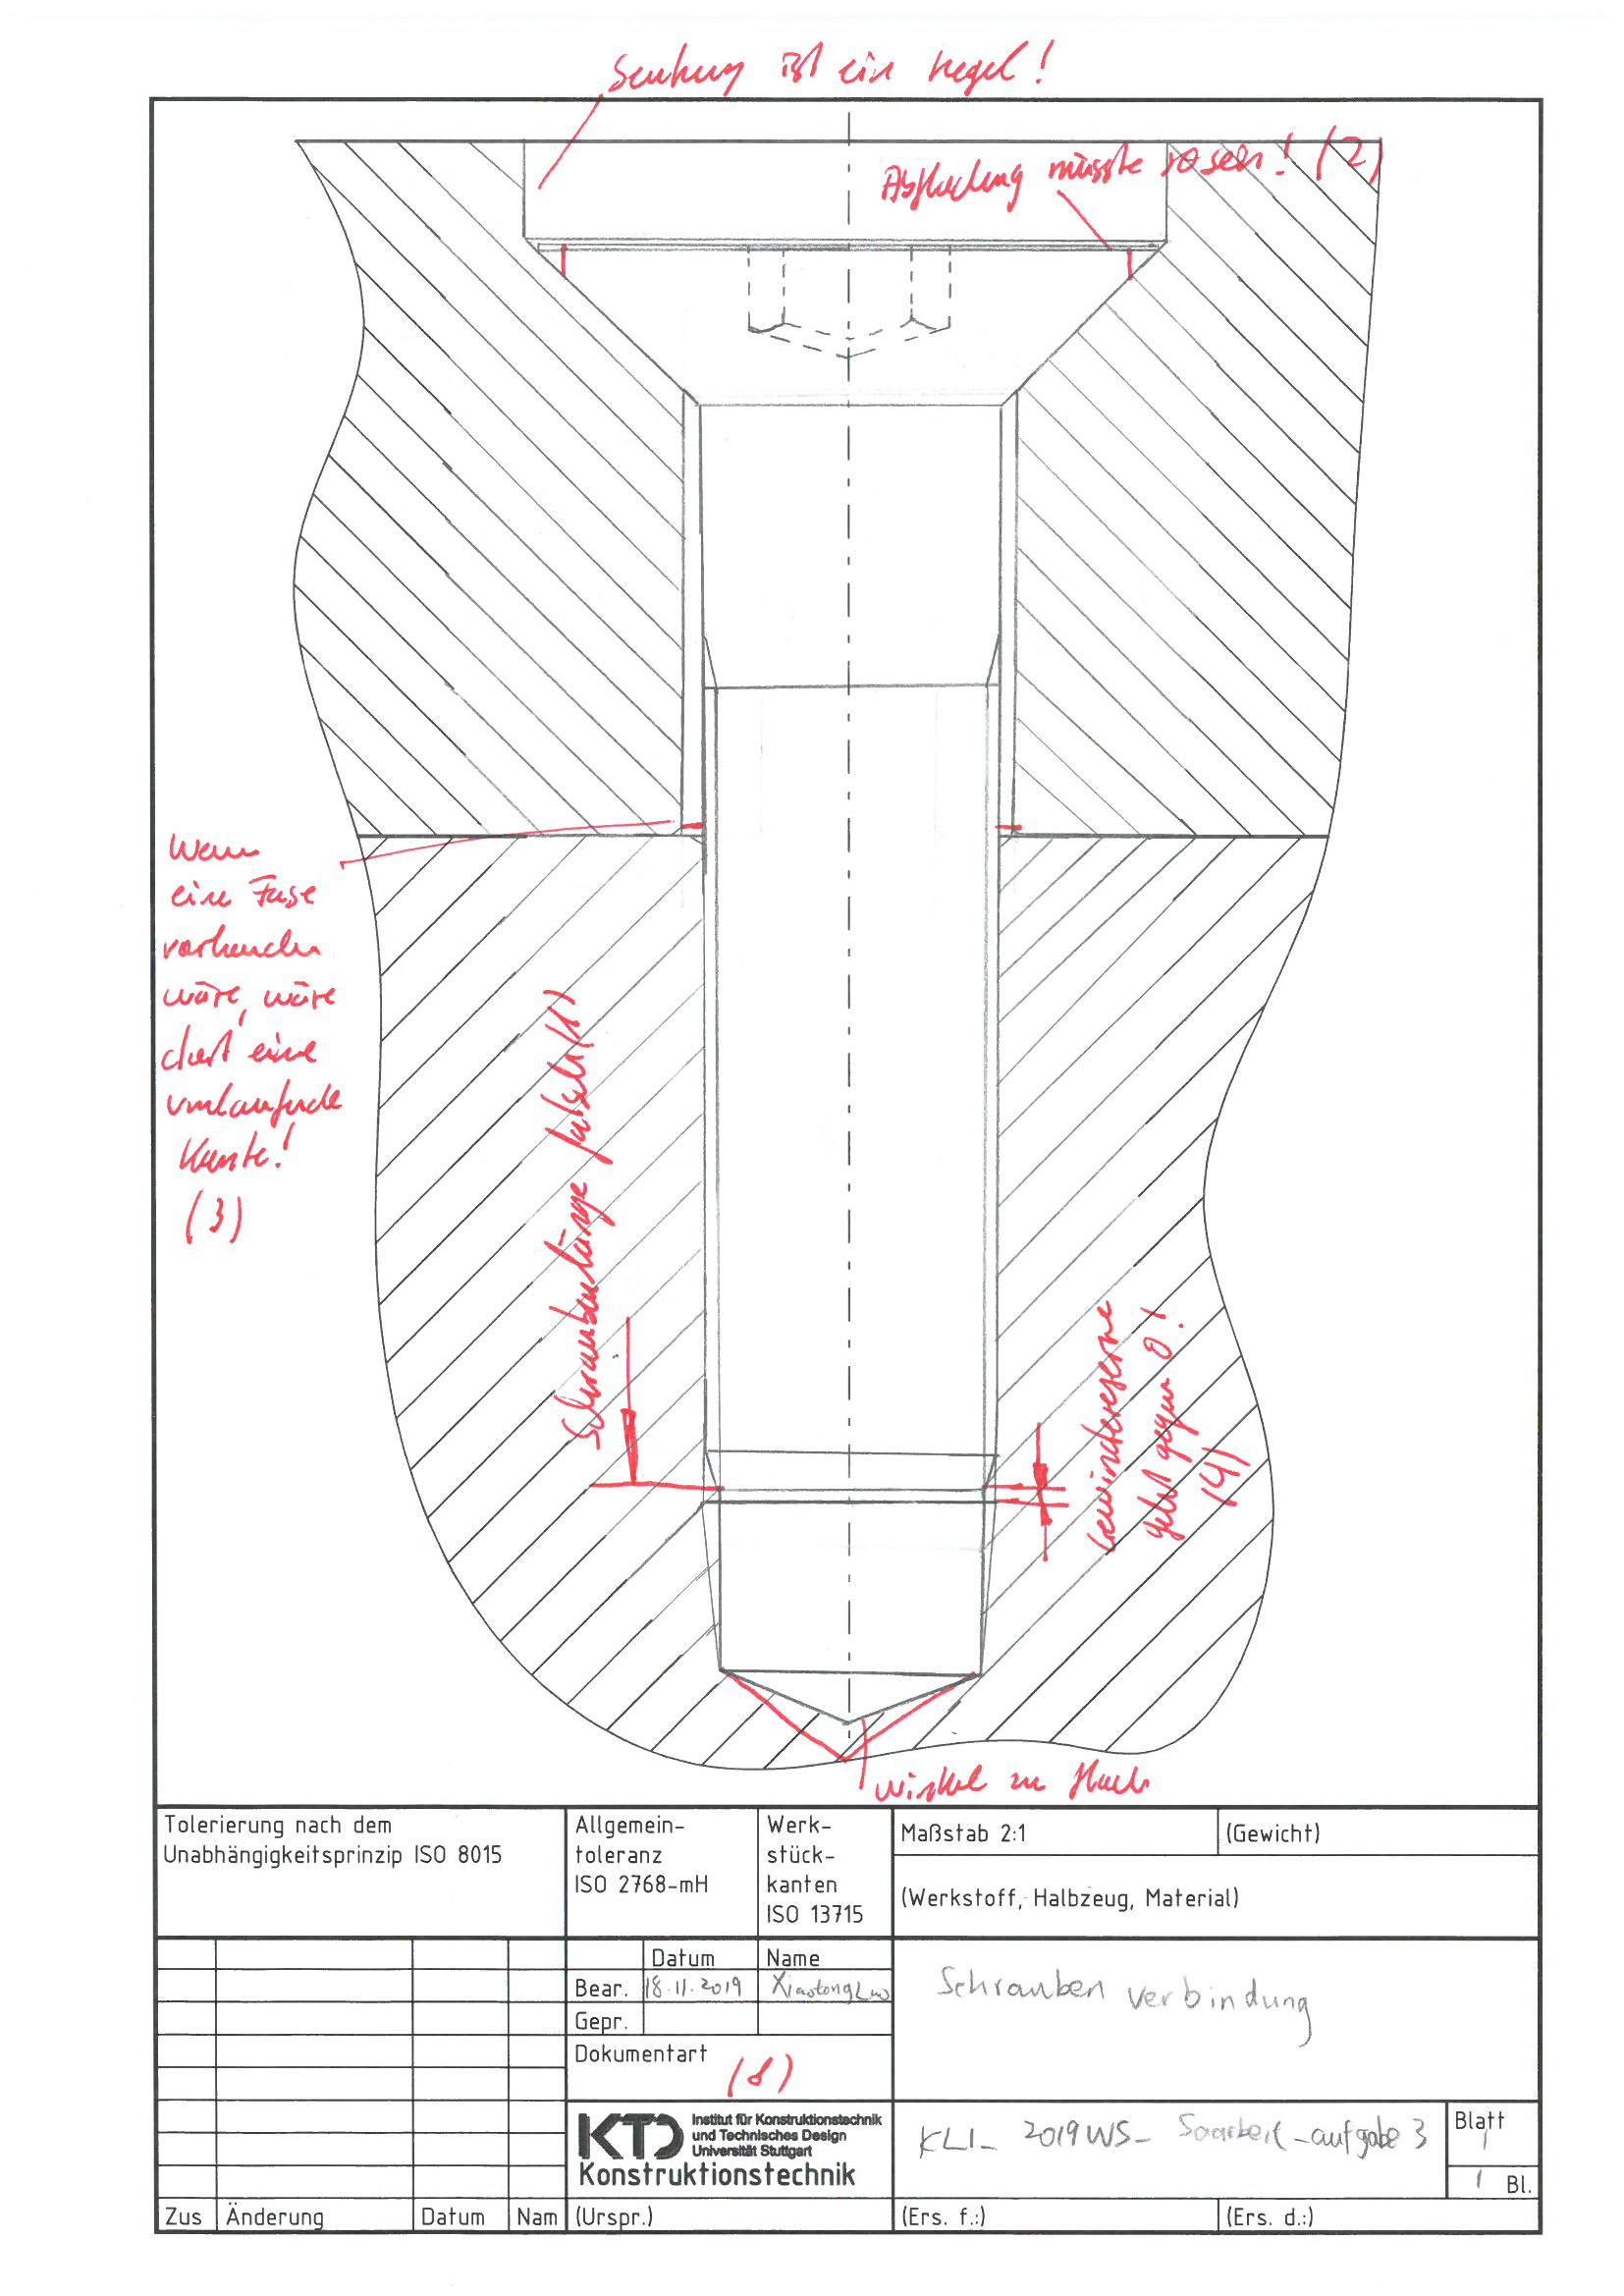 Senkung ist ein Kegel!
Abflachung müsste so sein! (2)
Wenn
eine Fase
vorhanden
wäre, wäre
dort eine
umlaufende
Kante!
(3)
Schraubenlänge falsch (1)
Gewindereserve
geht gegen 0!
(4)
Winkel zu flach
Tolerierung nach dem
Unabhängigkeitsprinzip ISO 8015
Allgemein-
toleranz
ISO 2768-mH
Werk-
stück-
kanten
ISO 13715
Maßstab 2:1
(Gewicht)
(Werkstoff, Halbzeug, Material)
Datum
Name
Bear.
18.11.2019
Xiaotong Luo
Gepr.
Dokumentart
(8)
Schrauben verbindung
KTD
Institut für Konstruktionstechnik
und Technisches Design
Universität Stuttgart
Konstruktionstechnik
KLI_ 2019WS_ _aufgabe 3
Blatt
1
1 Bl.
Zus
Änderung
Datum
Nam
(Urspr.)
(Ers. f.:)
(Ers. d.:)